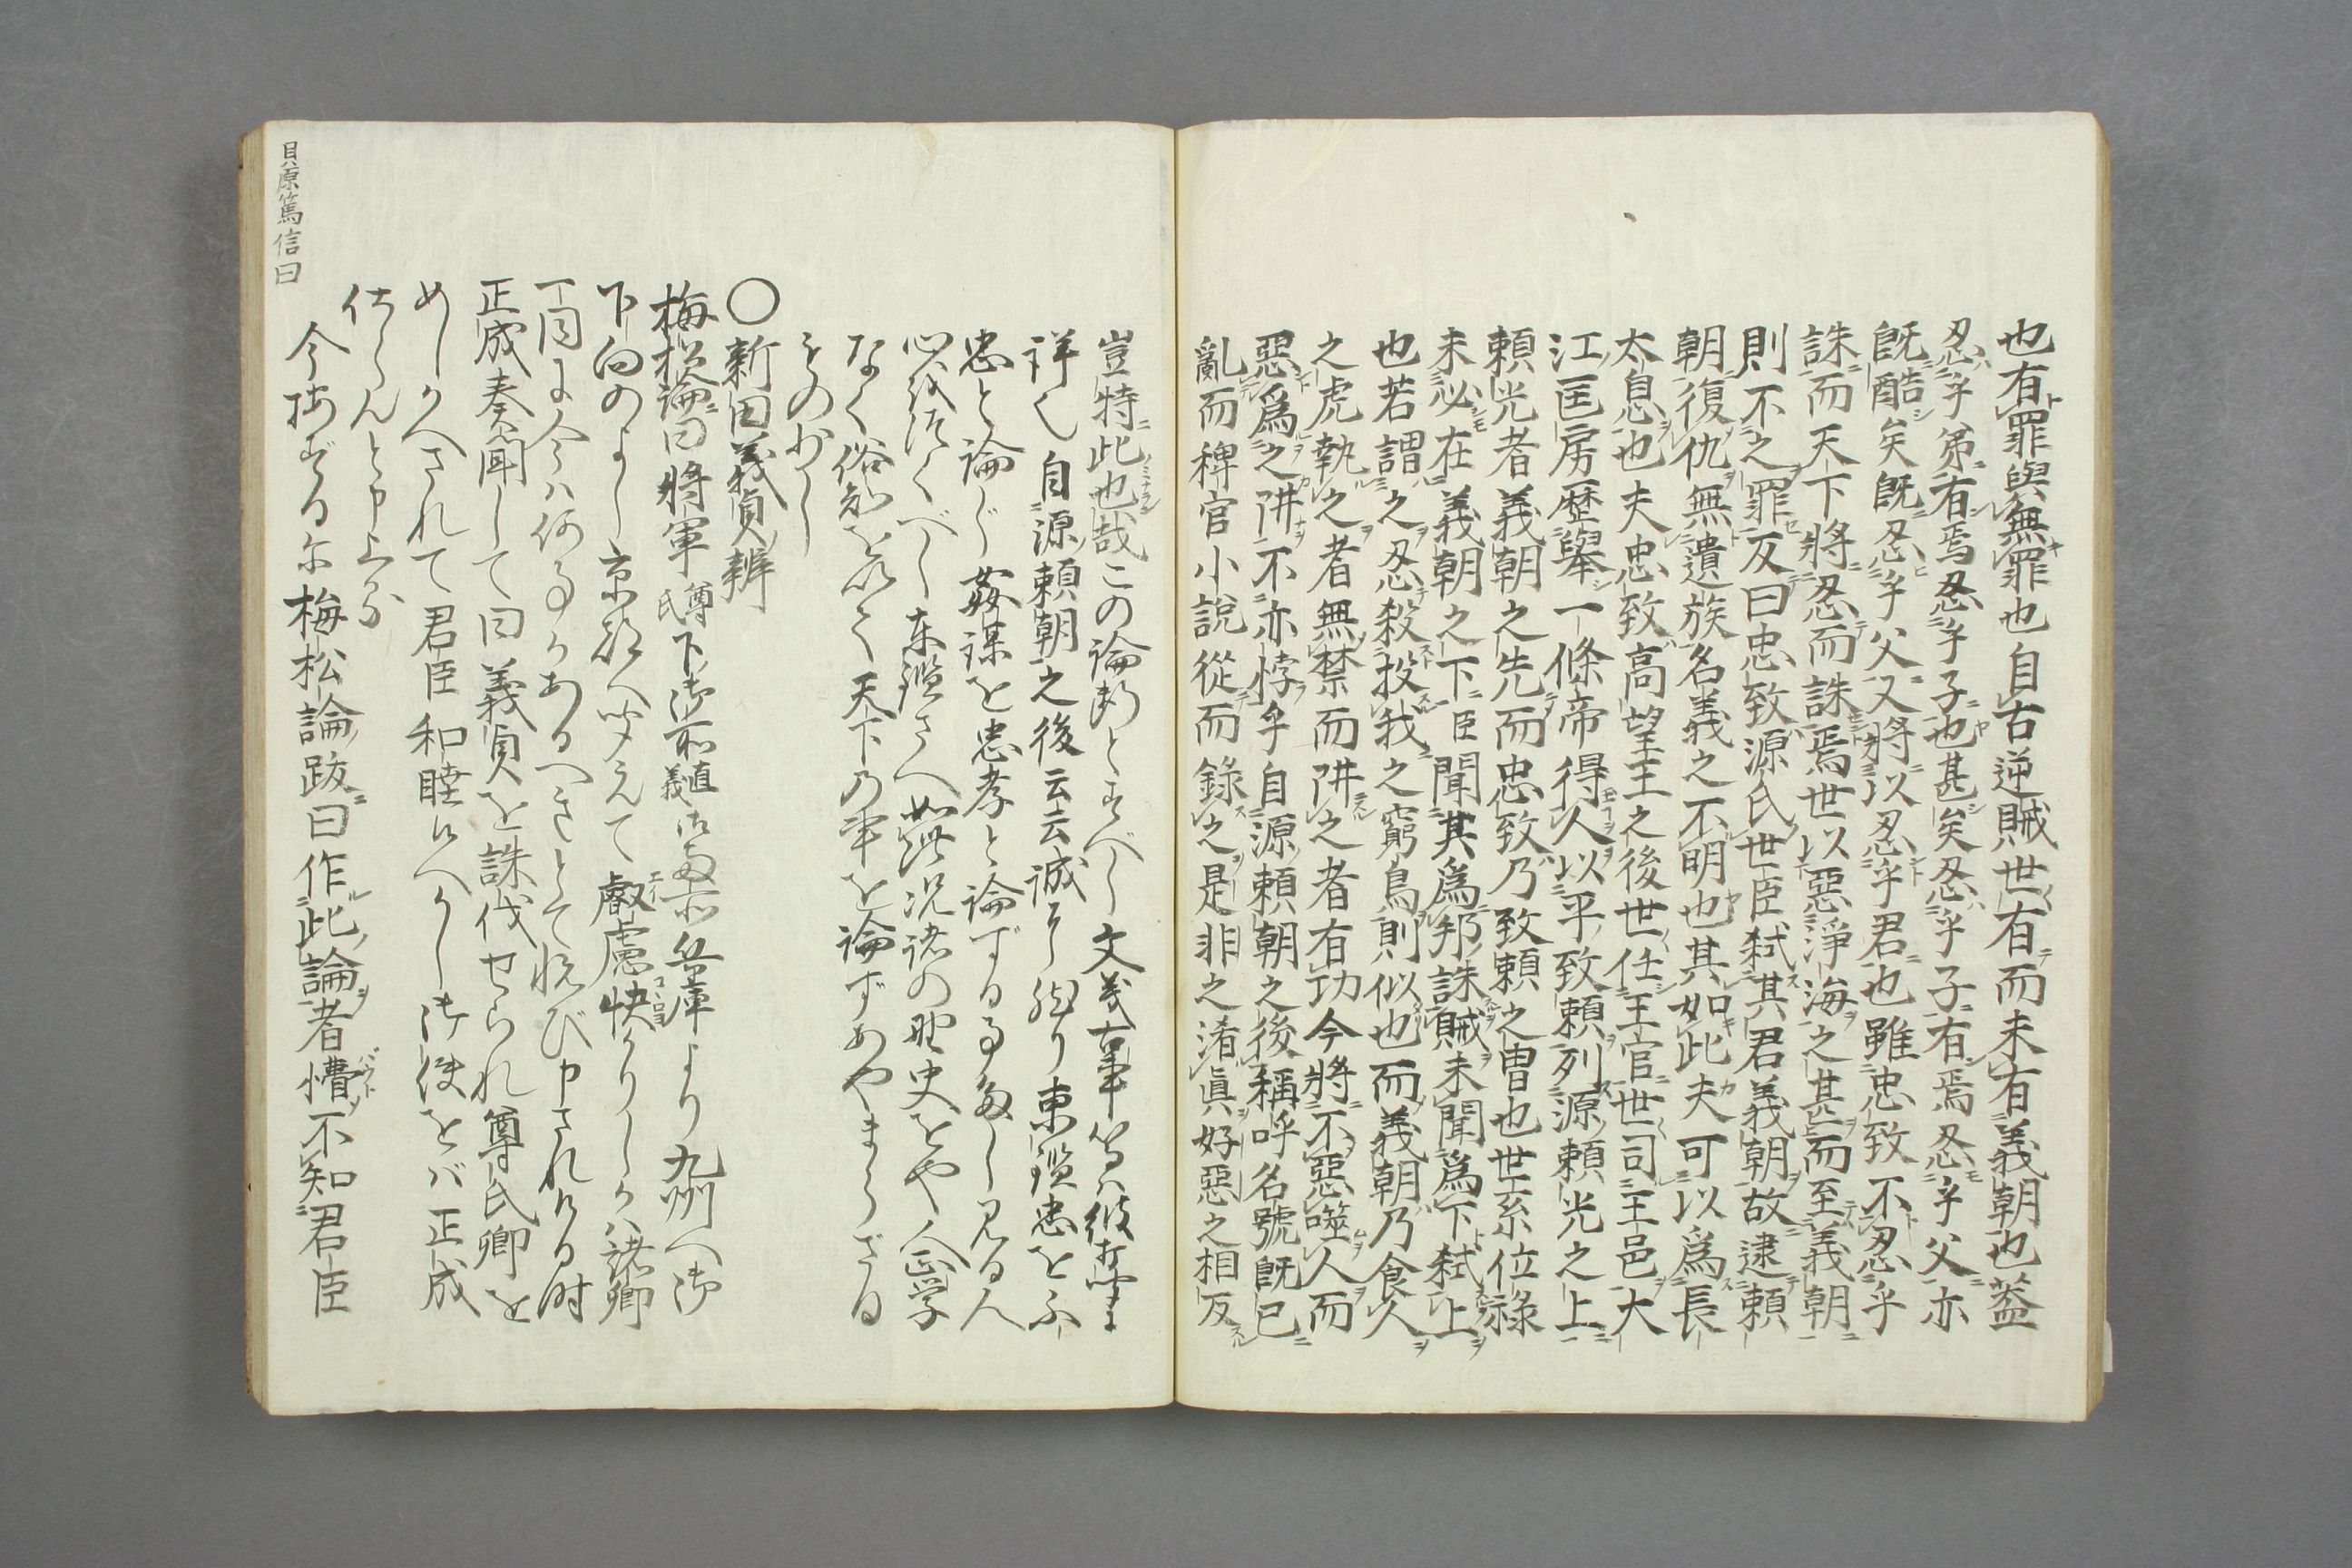 也有罪與無罪也自古逆賊世有而未有義朝也蓋
忍乎弟有焉忍乎子也甚矣忍乎子有焉忍乎父亦
既酷矣既忍乎父又將以忍乎君也雖忠致不忍乎
誅而天下將忍而誅焉世以惡淨海之甚而至義朝
則不之罪反曰忠致源氏世臣弑其君義朝故逮賴
朝復仇無遺族名義之不明也其如此夫可以為長
太息也夫忠致高望王之後世任王官世司王邑大
江匡房歷舉一條帝得人以平致賴列源賴光之上
賴光者義朝之先而忠致乃致賴之曽也世系位祿
未必在義朝之下臣聞其為邦誅賊未聞為下弑上
也若謂之忍殺投我之窮鳥則似也而義朝乃食人
之虎執之者無禁而阱之者有功今將不惡噬人而
惡為之阱不亦悖乎自源賴朝之後稱呼名號既已
亂而稗官小說從而錄之是非之淆眞好惡之相反
豈特此也哉この論断とすべし文義
詳く自源頼朝之後云云誠に東鑑忠を
忠と論じ姦謀を忠孝と論ずる事多し見る人
心を付くべし東鑑さへ如此況諸の野史をや人正学
なく俗知を以て天下の事を論ずあやまらざる
もの少し
〇新田義貞ノ辨
梅松論ニ曰將軍尊氏下御所直義兵庫より九州へ御
下向のよし京都へ聞えて叡慮快かりしかハ諸卿
一同に今ハ何事かあるへきとて悦び申されける時
正成奏聞して曰義貞を誅伐せられ尊氏卿を
めしかへされて君臣和睦候へかし御使をバ正成
仕らんと申上る
今按ずるに梅松論ノ跋ニ曰作此論者懵不知君臣
貝原篤信曰